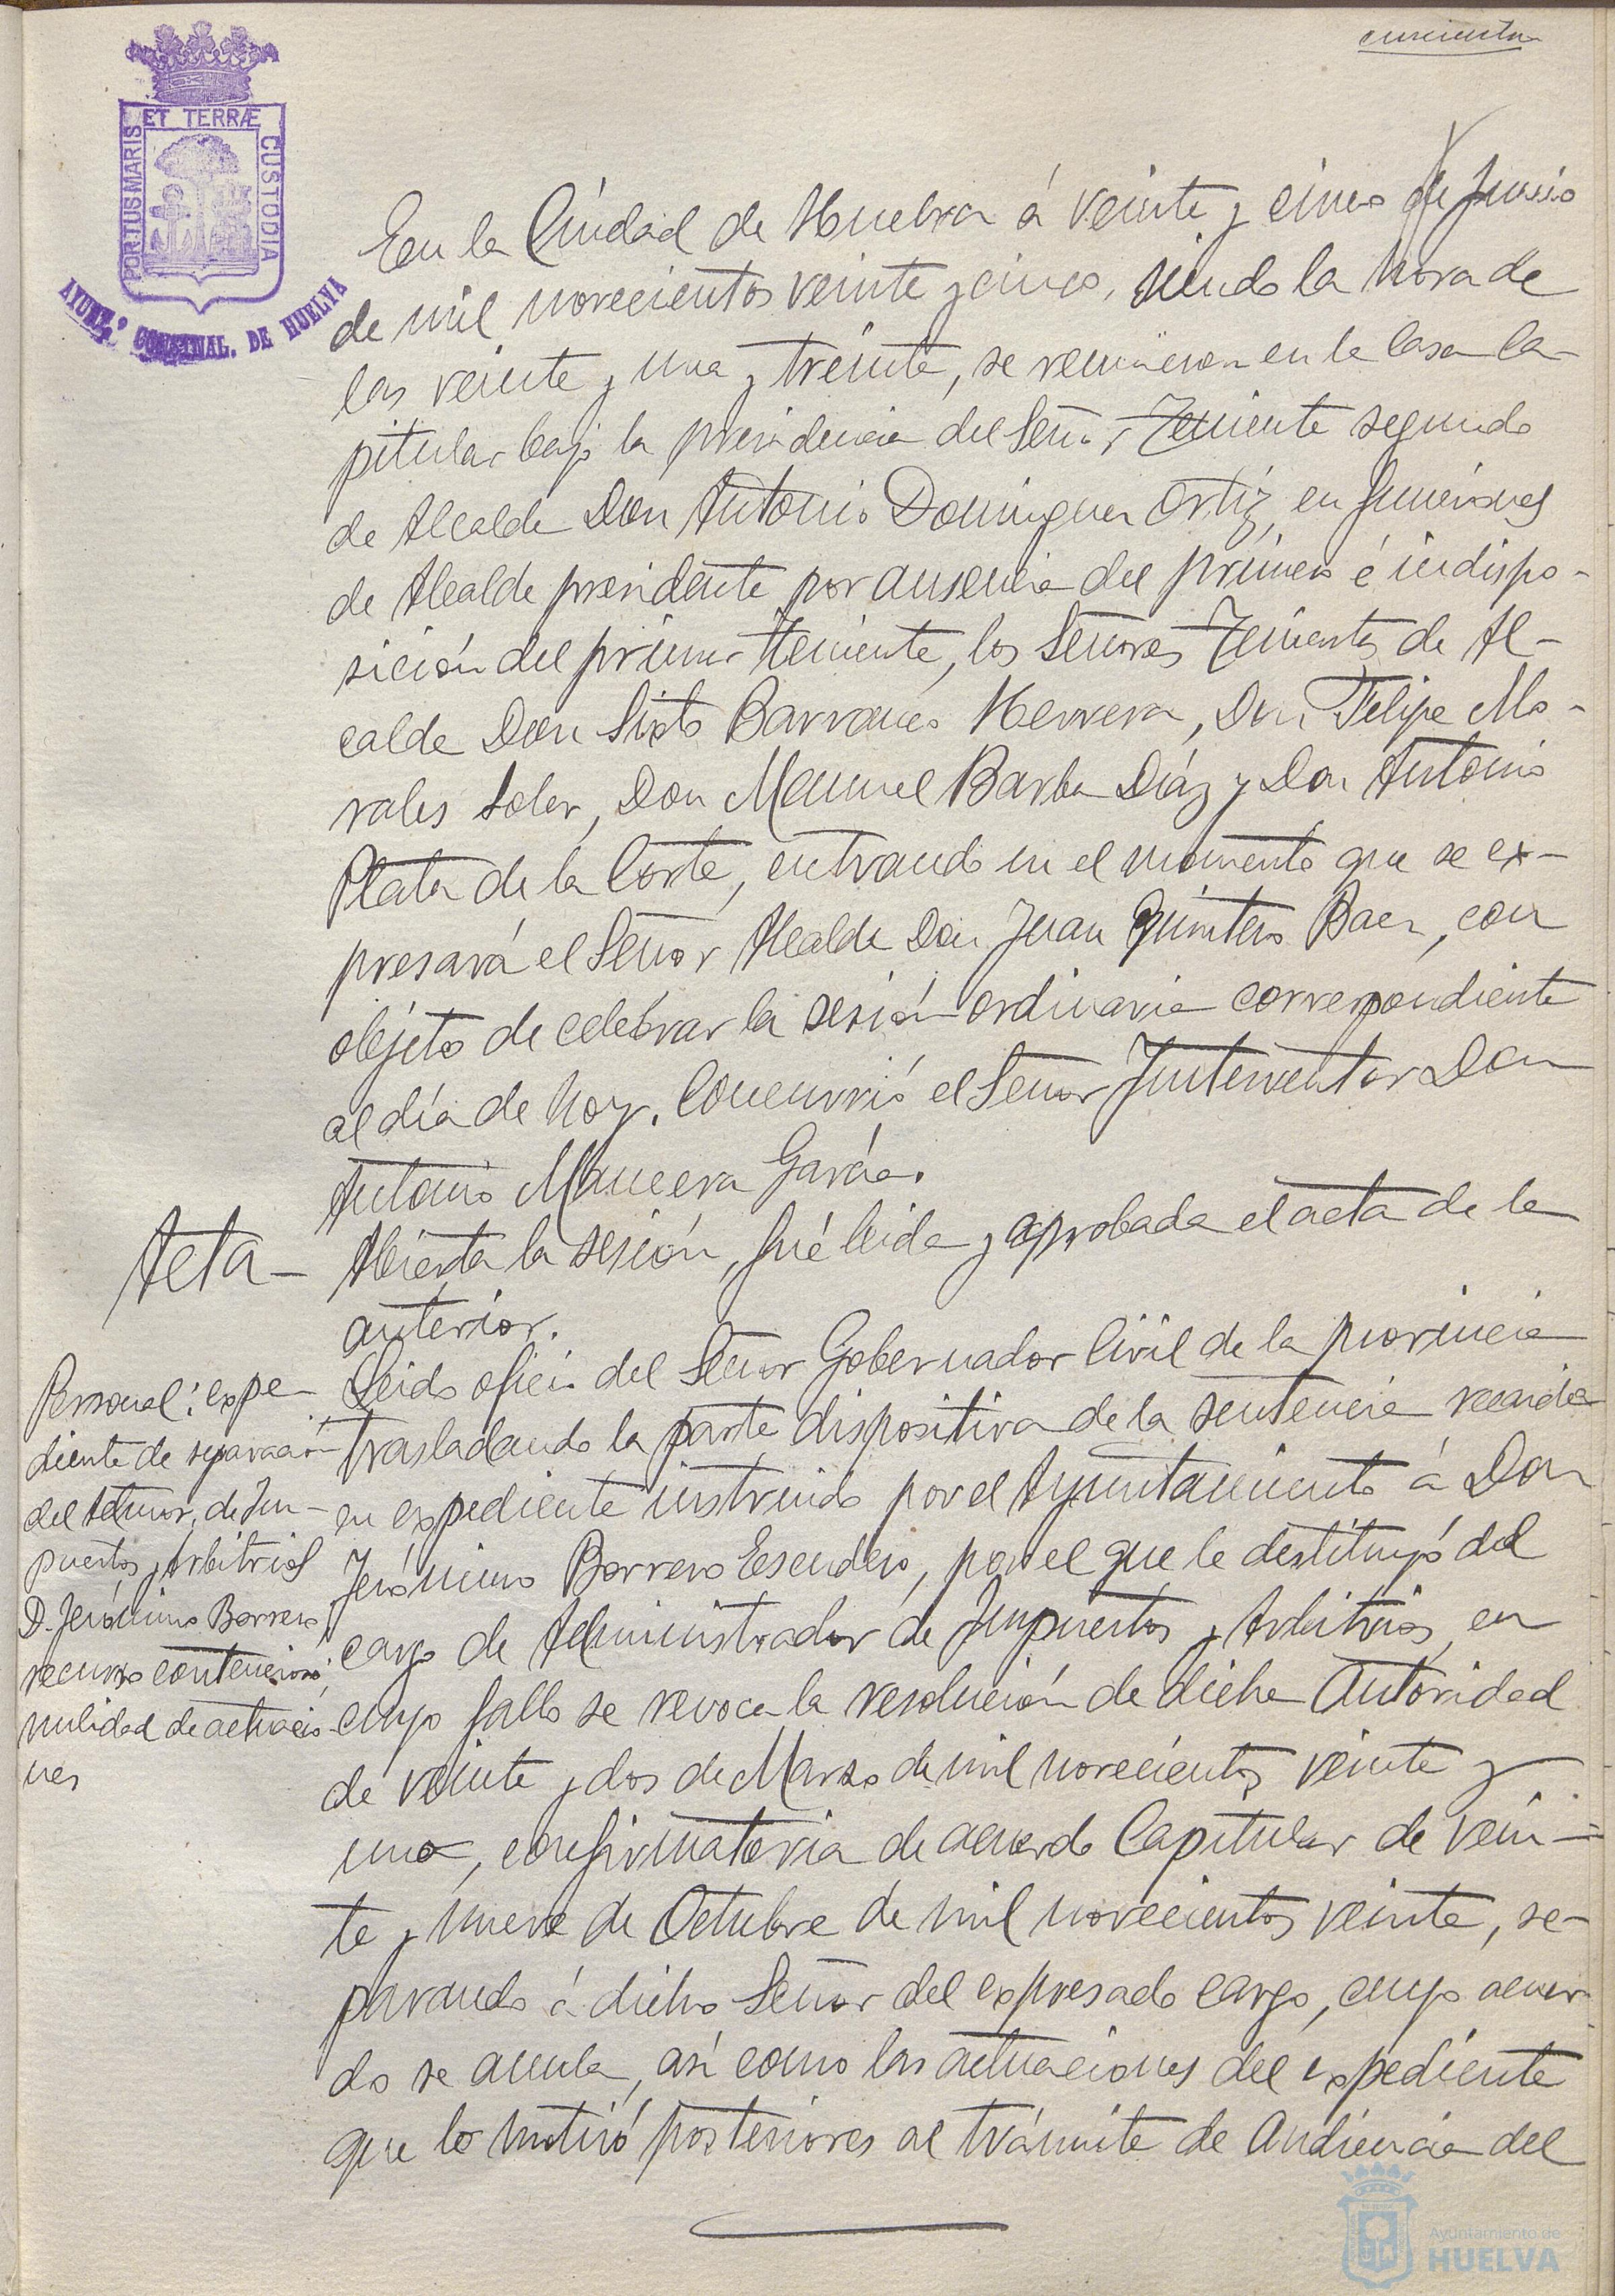 cincuenta
ET TERRÆ
PORTUS MARIS
CUSTODIA
AYUNT.º CONSTNAL. DE HUELVA
En la Ciudad de Huelva á veinte y cinco de Junio
de mil novecientos veinte y cinco, siendo la hora de
las veinte y una y treinta, se reunieron en la Casa Ca-
pitular bajo la presidencia del Señor Teniente segundo
de Alcalde Don Antonio Dominguez Ortiz, en funciones
de Alcalde presidente por ausencia del primero é indispo-
sición del primer teniente, los Señores Tenientes de Al-
calde Don Sixto Barranco Herrera, Don Felipe Mo-
rales Soler, Don Manuel Barba Díaz y Don Antonio
Plata de la Corte, entrando en el momento que se ex-
presará el Señor Alcalde Don Juan Quintero Baez, con
objeto de celebrar la sesión ordinaria correspondiente
al día de hoy. Concurrió el Señor Interventor Don
Antonio Mancera García.
Acta-
Abierta la sesión, fué leida y aprobada el acta de la
anterior.
Personal: expe-
diente de separación
del Admor. de Im-
puestos y Arbitrios
D. Jerónimo Borrero
recurso contencioso;
nulidad de actuacio-
nes
Leido oficio del Señor Gobernador Civil de la provincia
trasladando la parte dispositiva de la sentencia recaida
en expediente instruido por el Ayuntamiento á Don
Jerónimo Borrero Escudero, por el que le destituyó del
cargo de Administrador de Impuestos y Arbitrios, en
cuyo fallo se revoca la resolución de dicha Autoridad
de veinte y dos de Marzo de mil novecientos veinte y
uno, confirmatoria de acuerdo Capitular de vein-
te y nueve de Octubre de mil novecientos veinte, se-
parando á dicho Señor del expresado cargo, cuyo acuer-
do se anula, así como las actuaciones del expediente
que lo motivó posteriores al trámite de Audiencia del
Ayuntamiento de
HUELVA